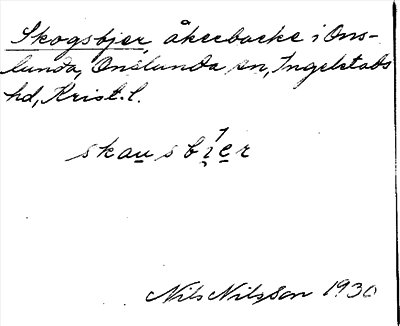 Skogsbjer, åkerbacke i Ons-
lunda, Onslunda sn, Ingelstads
hd, Krist. l.
skausbier
Nils Nilsson 1930